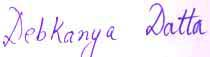 Debkanya Datta